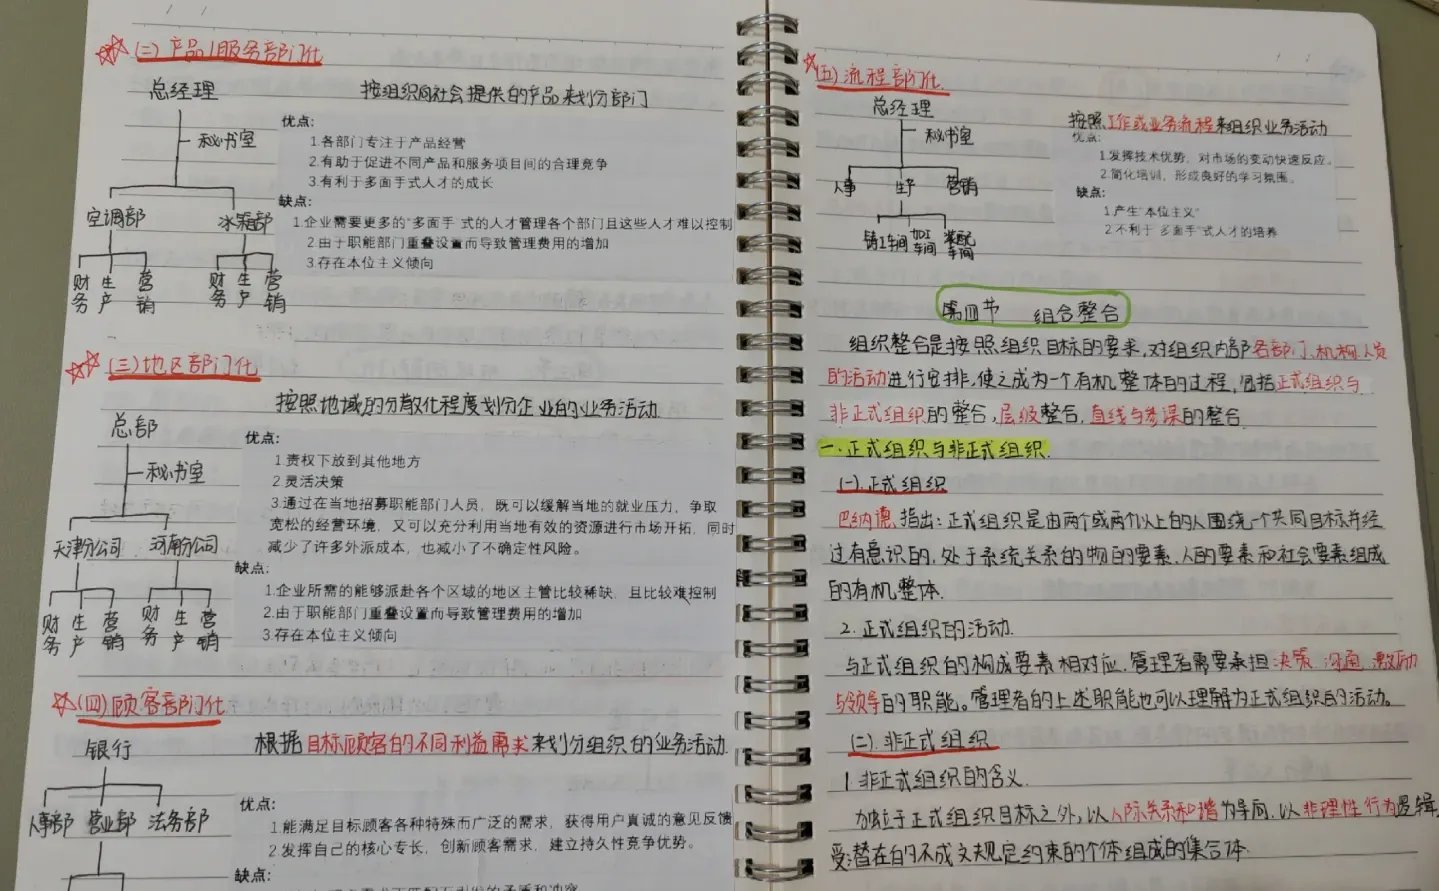 (二)产品/服务部门化
总经理
按组织向社会提供的产品来划分部门
秘书室
空调部 冰箱部
财务 生产 营销 财务 生产 营销
优点:
1.各部门专注于产品经营
2.有助于促进不同产品和服务项目间的合理竞争
3.有利于多面手式人才的成长
缺点:
1.企业需要更多的“多面手”式的人才管理各个部门且这些人才难以控制
2.由于职能部门重叠设置而导致管理费用的增加
3.存在本位主义倾向
(三)地区部门化
按照地域的分散化程度划分企业的业务活动
总部
秘书室
天津分公司 河南分公司
财务 生产 营销 财务 生产 营销
优点:
1.责权下放到其他地方
2.灵活决策
3.通过在当地招募职能部门人员，既可以缓解当地的就业压力，争取
宽松的经营环境，又可以充分利用当地有效的资源进行市场开拓，同时
减少了许多外派成本，也减小了不确定性风险。
缺点:
1.企业所需的能够派赴各个区域的地区主管比较稀缺，且比较难控制
2.由于职能部门重叠设置而导致管理费用的增加
3.存在本位主义倾向
(四)顾客部门化
银行
根据目标顾客的不同利益需求来划分组织的业务活动
人事部 营业部 法务部
优点:
1.能满足目标顾客各种特殊而广泛的需求，获得用户真诚的意见反馈
2.发挥自己的核心专长，创新顾客需求，建立持久性竞争优势。
缺点:
(五)流程部门化
总经理
秘书室
人事 生产 营销
铸工车间 加工车间 装配车间
按照工作或业务流程来组织业务活动
优点:
1.发挥技术优势，对市场的变动快速反应。
2.简化培训，形成良好的学习氛围。
缺点:
1.产生“本位主义”
2.不利于“多面手”式人才的培养
第四节 组合整合
组织整合是按照组织目标的要求,对组织内部各部门、机构、人员
的活动进行安排,使之成为一个有机整体的过程,包括正式组织与
非正式组织的整合,层级整合,直线与参谋的整合
一.正式组织与非正式组织.
(一).正式组织
巴纳德指出:正式组织是由两个或两个以上的人围绕一个共同目标并经
过有意识的,处于系统关系的物的要素,人的要素和社会要素组成
的有机整体.
2.正式组织的活动.
与正式组织的构成要素相对应,管理者需要承担决策、沟通、激励
与领导的职能。管理者的上述职能也可以理解为正式组织的活动。
(二).非正式组织
1.非正式组织的含义.
独立于正式组织目标之外,以人际关系和谐为导向,以非理性行为逻辑
受潜在的不成文规定约束的个体组成的集合体.